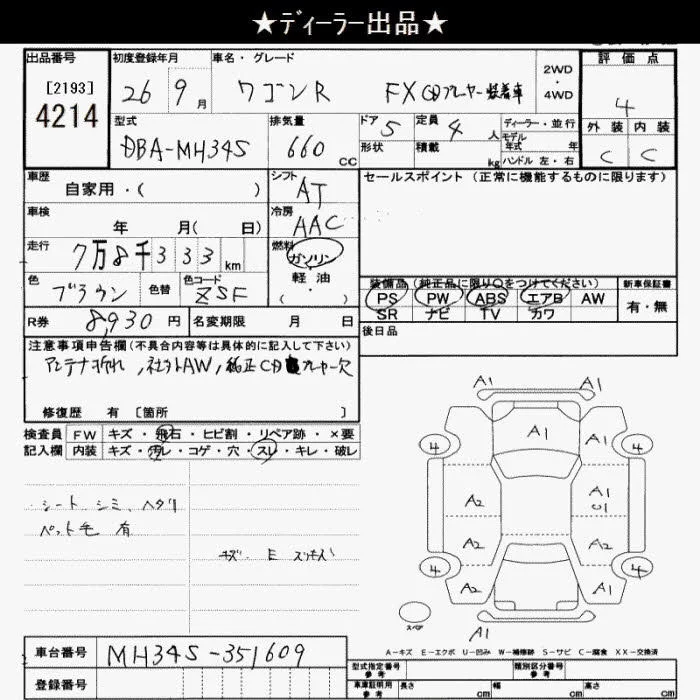 ★ディーラー出品★
出品番号 初度登録年月 車名・グレード 評価点
[2193] 4214 26 9月 ワゴンR FX CDプレーヤー装着車 2WD・4WD 4
型式 排気量 ドア 定員 ディーラー・並行 外装 内装
DBA-MH34S 660cc 5 4人 モデル年式 年 C C
形状 積載 kg ハンドル 左・右
車歴 シフト セールスポイント(正常に機能するものに限ります)
自家用・( ) AT
車検 冷房
年 月( 日) AAC
走行 燃料
7万8千333km ガソリン
軽油
・( )
色 色替 色コード
ブラウン ZSF
装備品(純正品に限り○をつけてください) 新車保証書
PS PW ABS エアB AW 有・無
SR ナビ TV カワ
R券 8,930円 名変期限 月 日 後日品
注意事項申告欄(不具合内容等は具体的に記入して下さい)
アンテナ折れ,社外AW,純正CDプレーヤー欠
修復歴 有 [箇所 ]
検査員 FW キズ・飛石・ヒビ割・リペア跡・×要
記入欄 内装 キズ・汚レ・コゲ・穴・スレ・キレ・破レ
・シート シミ ヘタリ
ペット毛 有
キズ E
A1 A1
4 A1 4
A2 A1
U1
A2 A2
4 4
A2 A1
スペア A1
A-キズ E-エクボ U-凹み W-補修跡 S-サビ C-腐食 XX-交換済
車台番号 MH34S-351609
型式指定番号 参考 類別区分番号 参考
登録番号 車庫証明用 参考 長さ cm 幅 cm 高さ cm